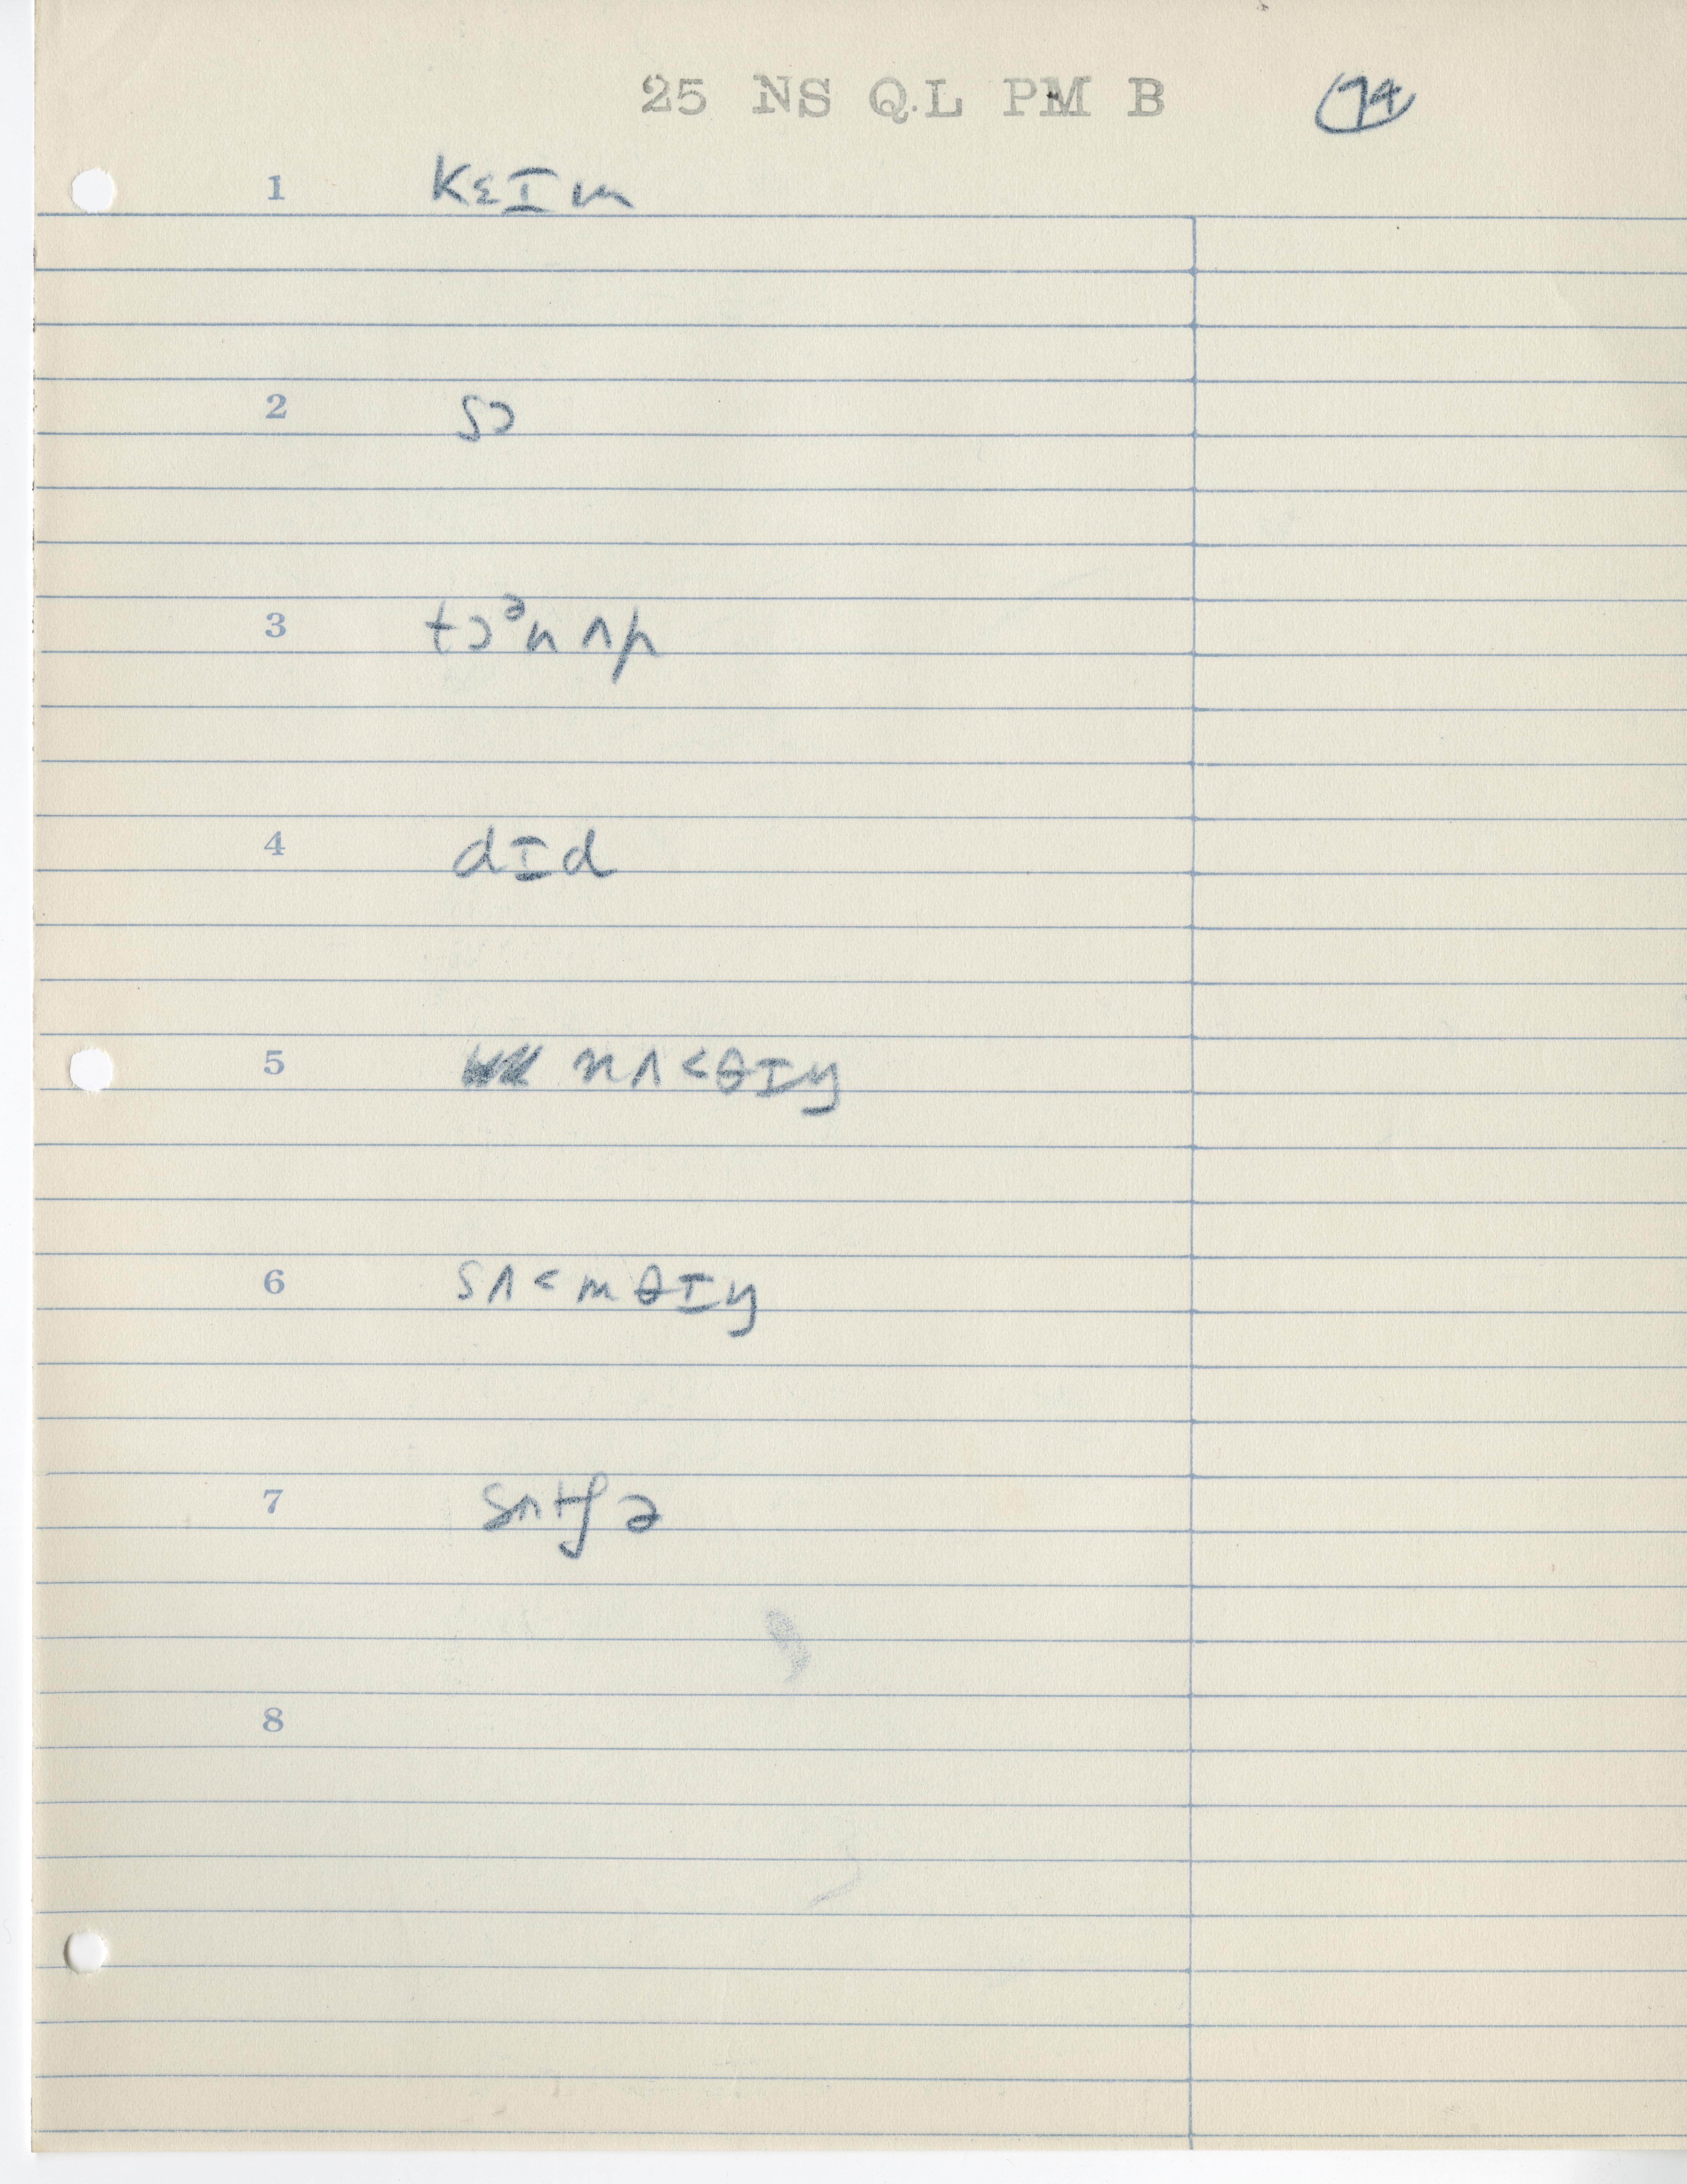 25 NS QL PM B 74
1 kɛɪm
2 sɔ
3 tɔᵊn ʌp
4 dɪd
5 nʌ˂θɪŋ
6 sʌ˂mθɪŋ
7 sʌtʃ ə
8